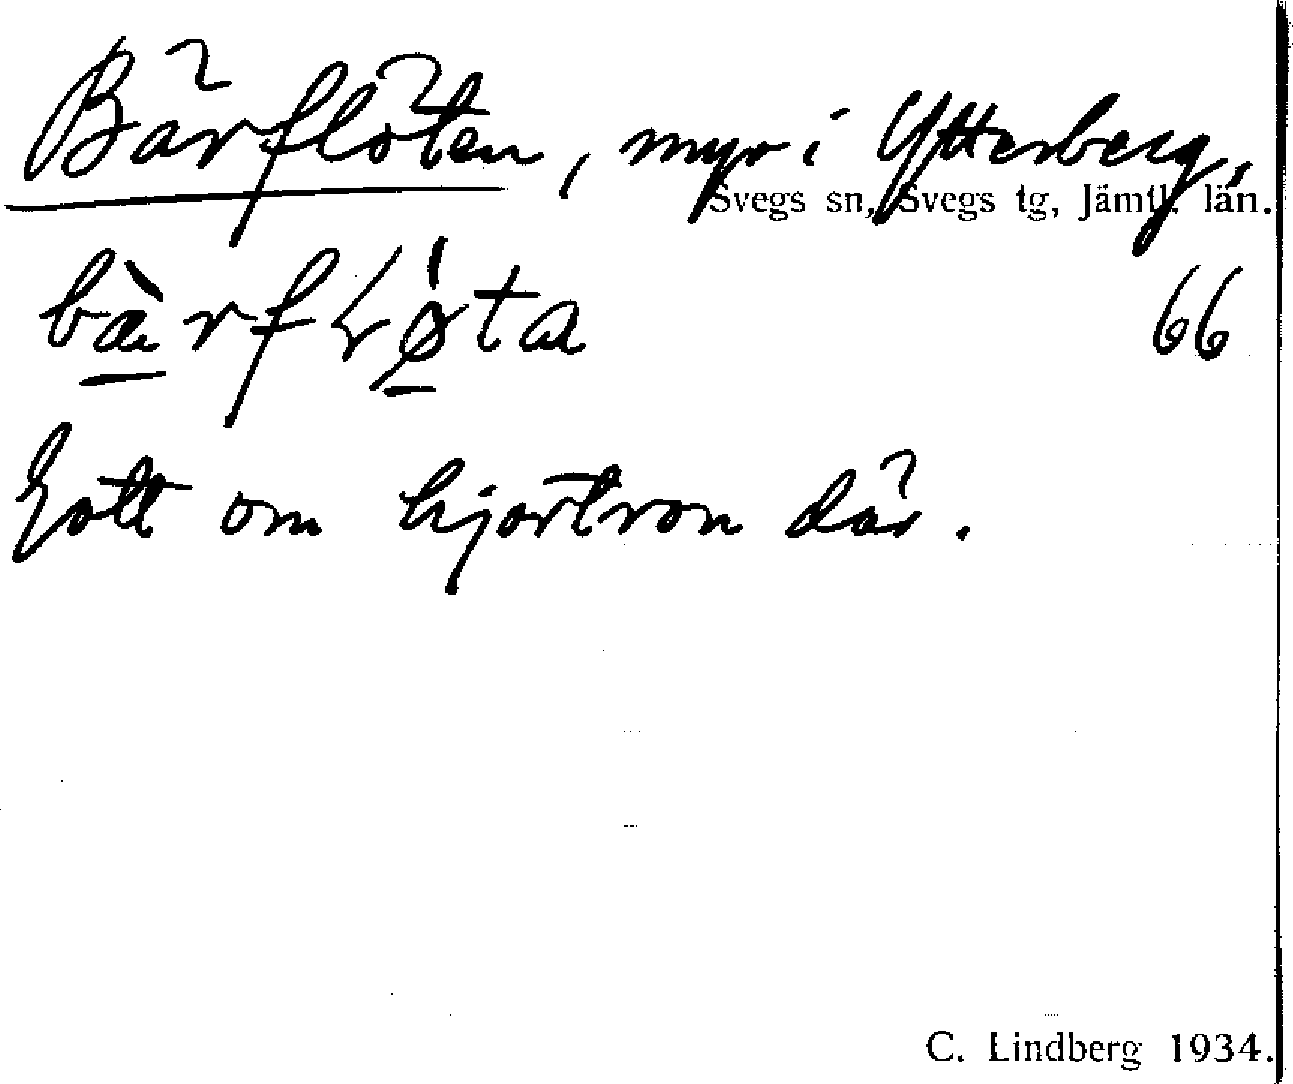 Bärflöten, myr i Ytterberg,
Svegs sn, Svegs tg, Jämtl. län.
bæ̀rfLǿta 66
Gott om hjortron där.
C. Lindberg 1934.